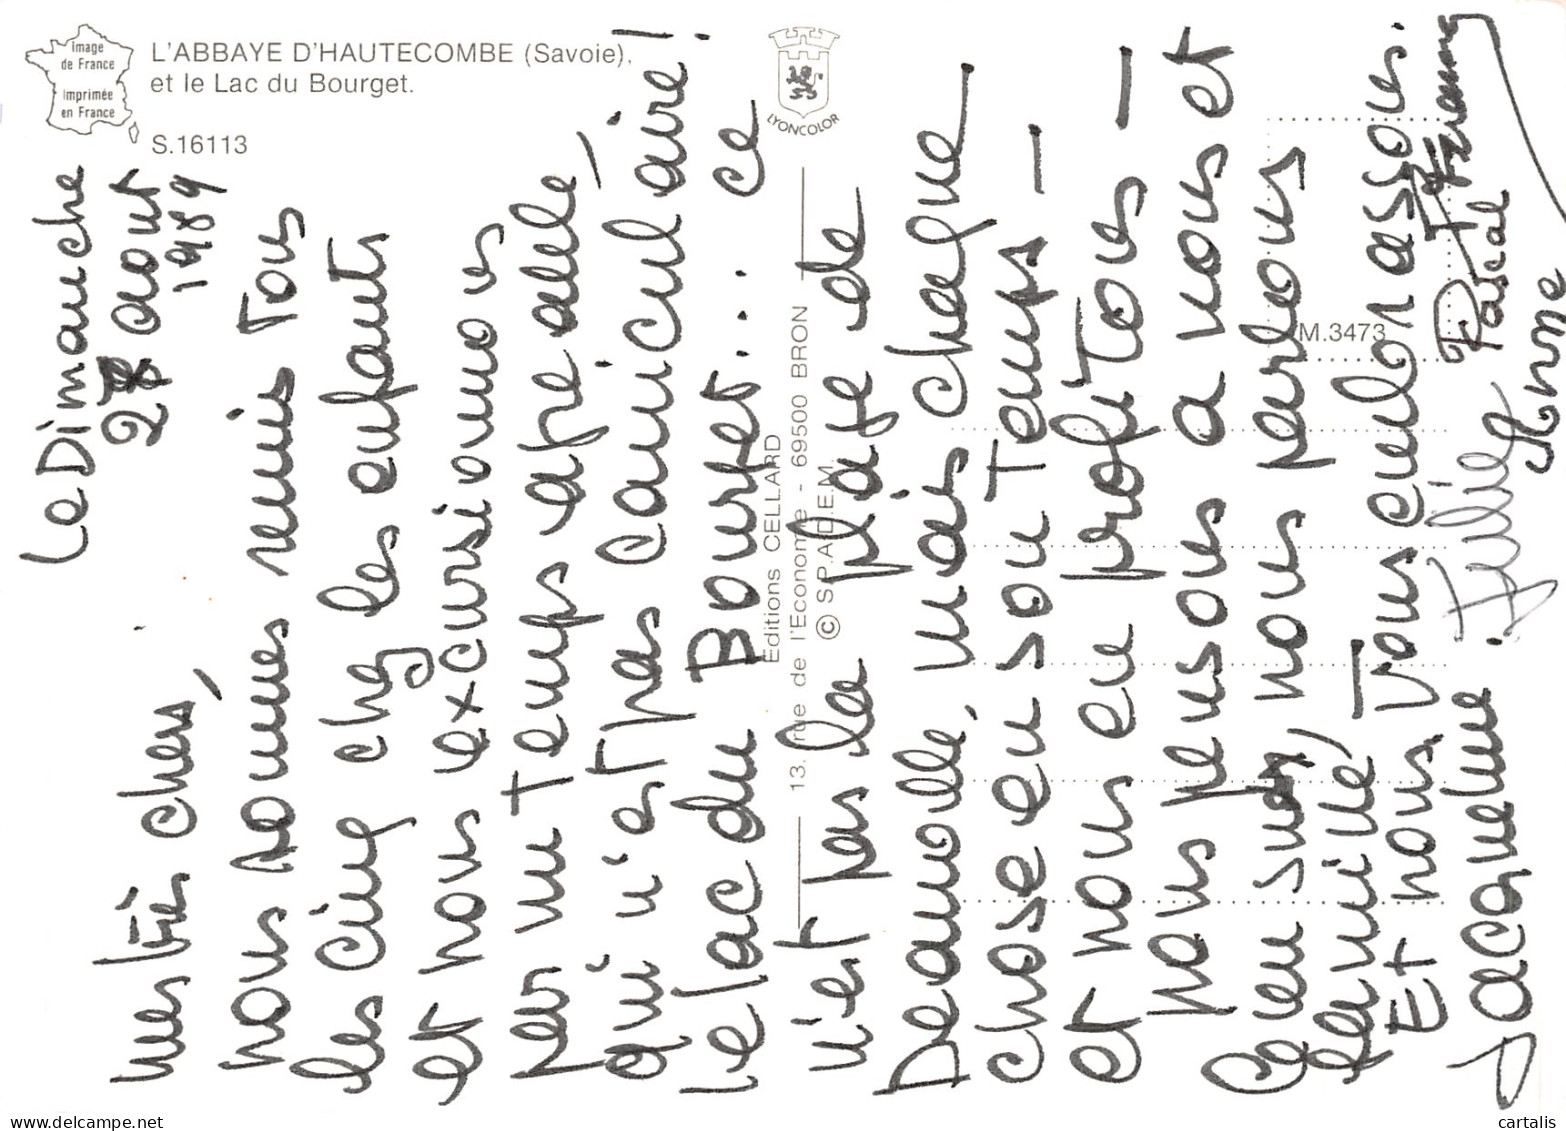 Image
de France
Imprimée
en France
L'ABBAYE D'HAUTECOMBE (Savoie),
et le Lac du Bourget.
S.16113
LYONCOLOR
Editions CELLARD
13, rue de l'Economie - 69500 BRON
© S.P.A.D.E.M.
M.3473
Le Dimanche
27 aout
1989
mes très chers,
nous sommes réunis Tous
les cinq chez les enfants
et nous excursionnons
par un Temps agréable,
qui n'est pas caniculaire !
le lac du Bourget... ce
n'est pas la plage de
Deauville, mais chaque
chose en son Temps —
et nous en profitons —
nous pensons à vous et
bien sûr, nous parlons
famille, Tous
Et nous vous embrassons.
Jacqueline. Julie
Anne
Pascal
cartalis
delcampe.net